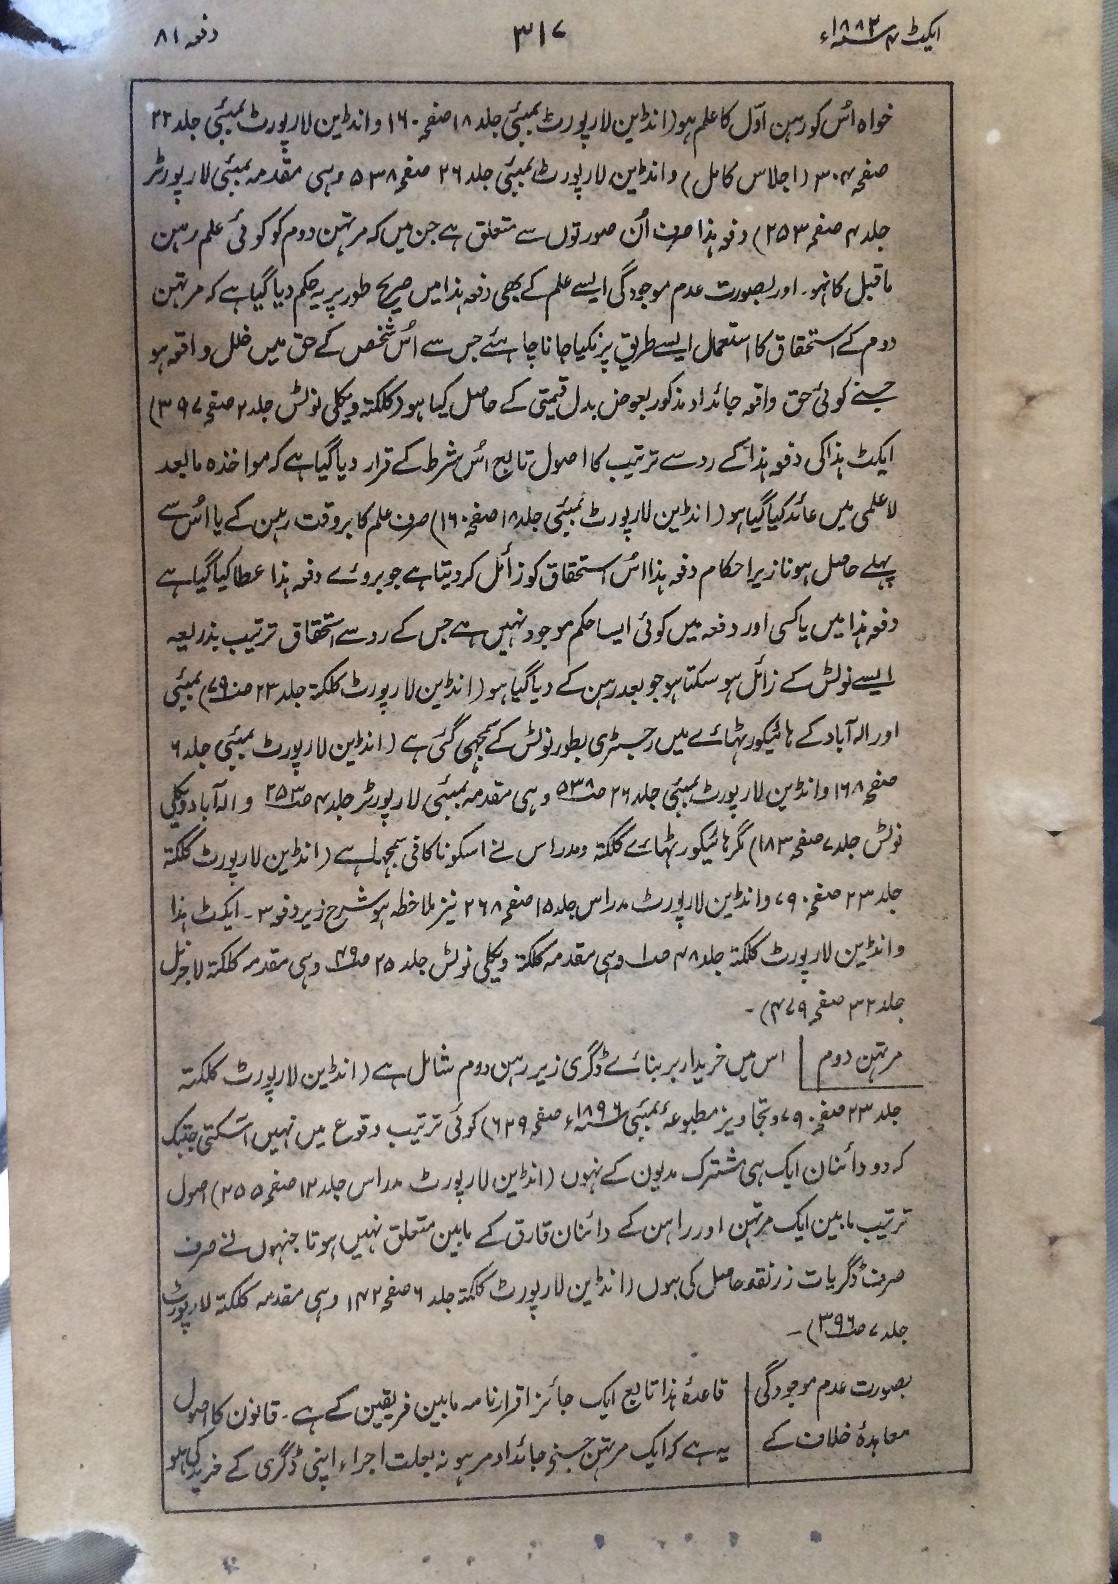 ایکٹ ۴ ۱۸۸۲ء
۳۱۷
دفعہ ۸۱
خواہ اُس کو رہن اوّل کا علم ہو (انڈین لارپورٹ بمبئی جلد ۱۸ صفحہ ۱۶۰ و انڈین لارپورٹ بمبئی جلد ۲۲
صفحہ ۳۰۴ (اجلاس کامل) و انڈین لارپورٹ بمبئی جلد ۲۶ صفحہ ۵۳۸ وہی مقدمہ بمبئی لارپورٹر
جلد ۴ صفحہ ۲۵۳) دفعہ ہذا صرف اُن صورتوں سے متعلق ہے جن میں کہ مرتہن دوم کو کوئی علم رہن
ماقبل کا نہو۔ اور بصورت عدم موجودگی ایسے علم کے بھی دفعہ ہذا میں صریح طور پر یہ حکم دیا گیا ہے کہ مرتہن
دوم کے استحقاق کا استعمال ایسے طریق پر نکیا جانا چاہئے جس سے اُس شخص کے حق میں خلل واقعہ ہو
جسنے کوئی حق واقعہ جائداد مذکور بعوض بدل قیمتی کے حاصل کیا ہو (کلکتہ ویکلی نوٹس جلد ۲ صفحہ ۳۹۷)
ایکٹ ہذا کی دفعہ ہذا کے رو سے ترتیب کا اصول تابع اس شرط کے قرار دیا گیا ہے کہ مواخذہ مابعد
لا علمی میں عائد کیا گیا ہو (انڈین لارپورٹ بمبئی جلد ۱۸ صفحہ ۱۶۰) صرف علم کا بروقت رہن کے یا اُس سے
پہلے حاصل ہونا زیر احکام دفعہ ہذا اس استحقاق کو زائل کر دیتا ہے جو بروئے دفعہ ہذا عطا کیا گیا ہے
دفعہ ہذا میں یا کسی اور دفعہ میں کوئی ایسا حکم موجود نہیں ہے جس کے رو سے استحقاق ترتیب بذریعہ
ایسے نوٹس کے زائل ہو سکتا ہو جو بعد رہن کے دیا گیا ہو (انڈین لارپورٹ کلکتہ جلد ۲۳ صفحہ ۷۹۰) بمبئی
اور الہ آباد کے ہائیکورٹہائے میں رجسٹری بطور نوٹس کے سمجھی گئی ہے (انڈین لارپورٹ بمبئی جلد ۶
صفحہ ۱۶۸ و انڈین لارپورٹ بمبئی جلد ۲۶ صفحہ ۵۳۸ وہی مقدمہ بمبئی لارپورٹر جلد ۴ صفحہ ۲۵۳ و الہ آباد ویکلی
نوٹس جلد ۷ صفحہ ۱۸۳) مگر ہائیکورٹہائے کلکتہ و مدراس نے اسکو ناکافی سمجھا ہے (انڈین لارپورٹ کلکتہ
جلد ۲۳ صفحہ ۷۹۰ و انڈین لارپورٹ مدراس جلد ۱۵ صفحہ ۲۶۸ نیز ملاحظہ ہو شرح زیر دفعہ ۳۔ ایکٹ ہذا
و انڈین لارپورٹ کلکتہ جلد ۴۸ صفحہ ۱ وہی مقدمہ کلکتہ ویکلی نوٹس جلد ۲۵ صفحہ ۴۹ وہی مقدمہ کلکتہ لا جرنل
جلد ۳۲ صفحہ ۴۷۹)۔
مرتہن دوم | اس میں خریدار بر بنائے ڈگری زیر رہن دوم شامل ہے (انڈین لارپورٹ کلکتہ
جلد ۲۳ صفحہ ۷۹۰ و تجاویز مطبوعہ بمبئی ۱۸۹۶ء صفحہ ۶۲۹) کوئی ترتیب وقوع میں نہیں آسکتی جبتک
کہ دو دائنان ایک ہی مشترک مدیون کے نہوں (انڈین لارپورٹ مدراس جلد ۱۲ صفحہ ۲۵۵) اصول
ترتیب مابین ایک مرتہن اور راہن کے دائنان قارق کے مابین متعلق نہیں ہوتا جنہوں نے صرف
صرف ڈگریات زر نقد حاصل کی ہوں (انڈین لارپورٹ کلکتہ جلد ۶ صفحہ ۱۴۲ وہی مقدمہ کلکتہ لارپورٹ
جلد ۷ صفحہ ۳۹۶)۔
بصورت عدم موجودگی | قاعدۂ ہذا تابع ایک جائز اقرارنامہ مابین فریقین کے ہے۔ قانون کا اصول
معاہدۂ خلاف کے | یہ ہے کہ ایک مرتہن جسنے جائداد مرہونہ بعلت اجراء اپنی ڈگری کے خرید کی ہو